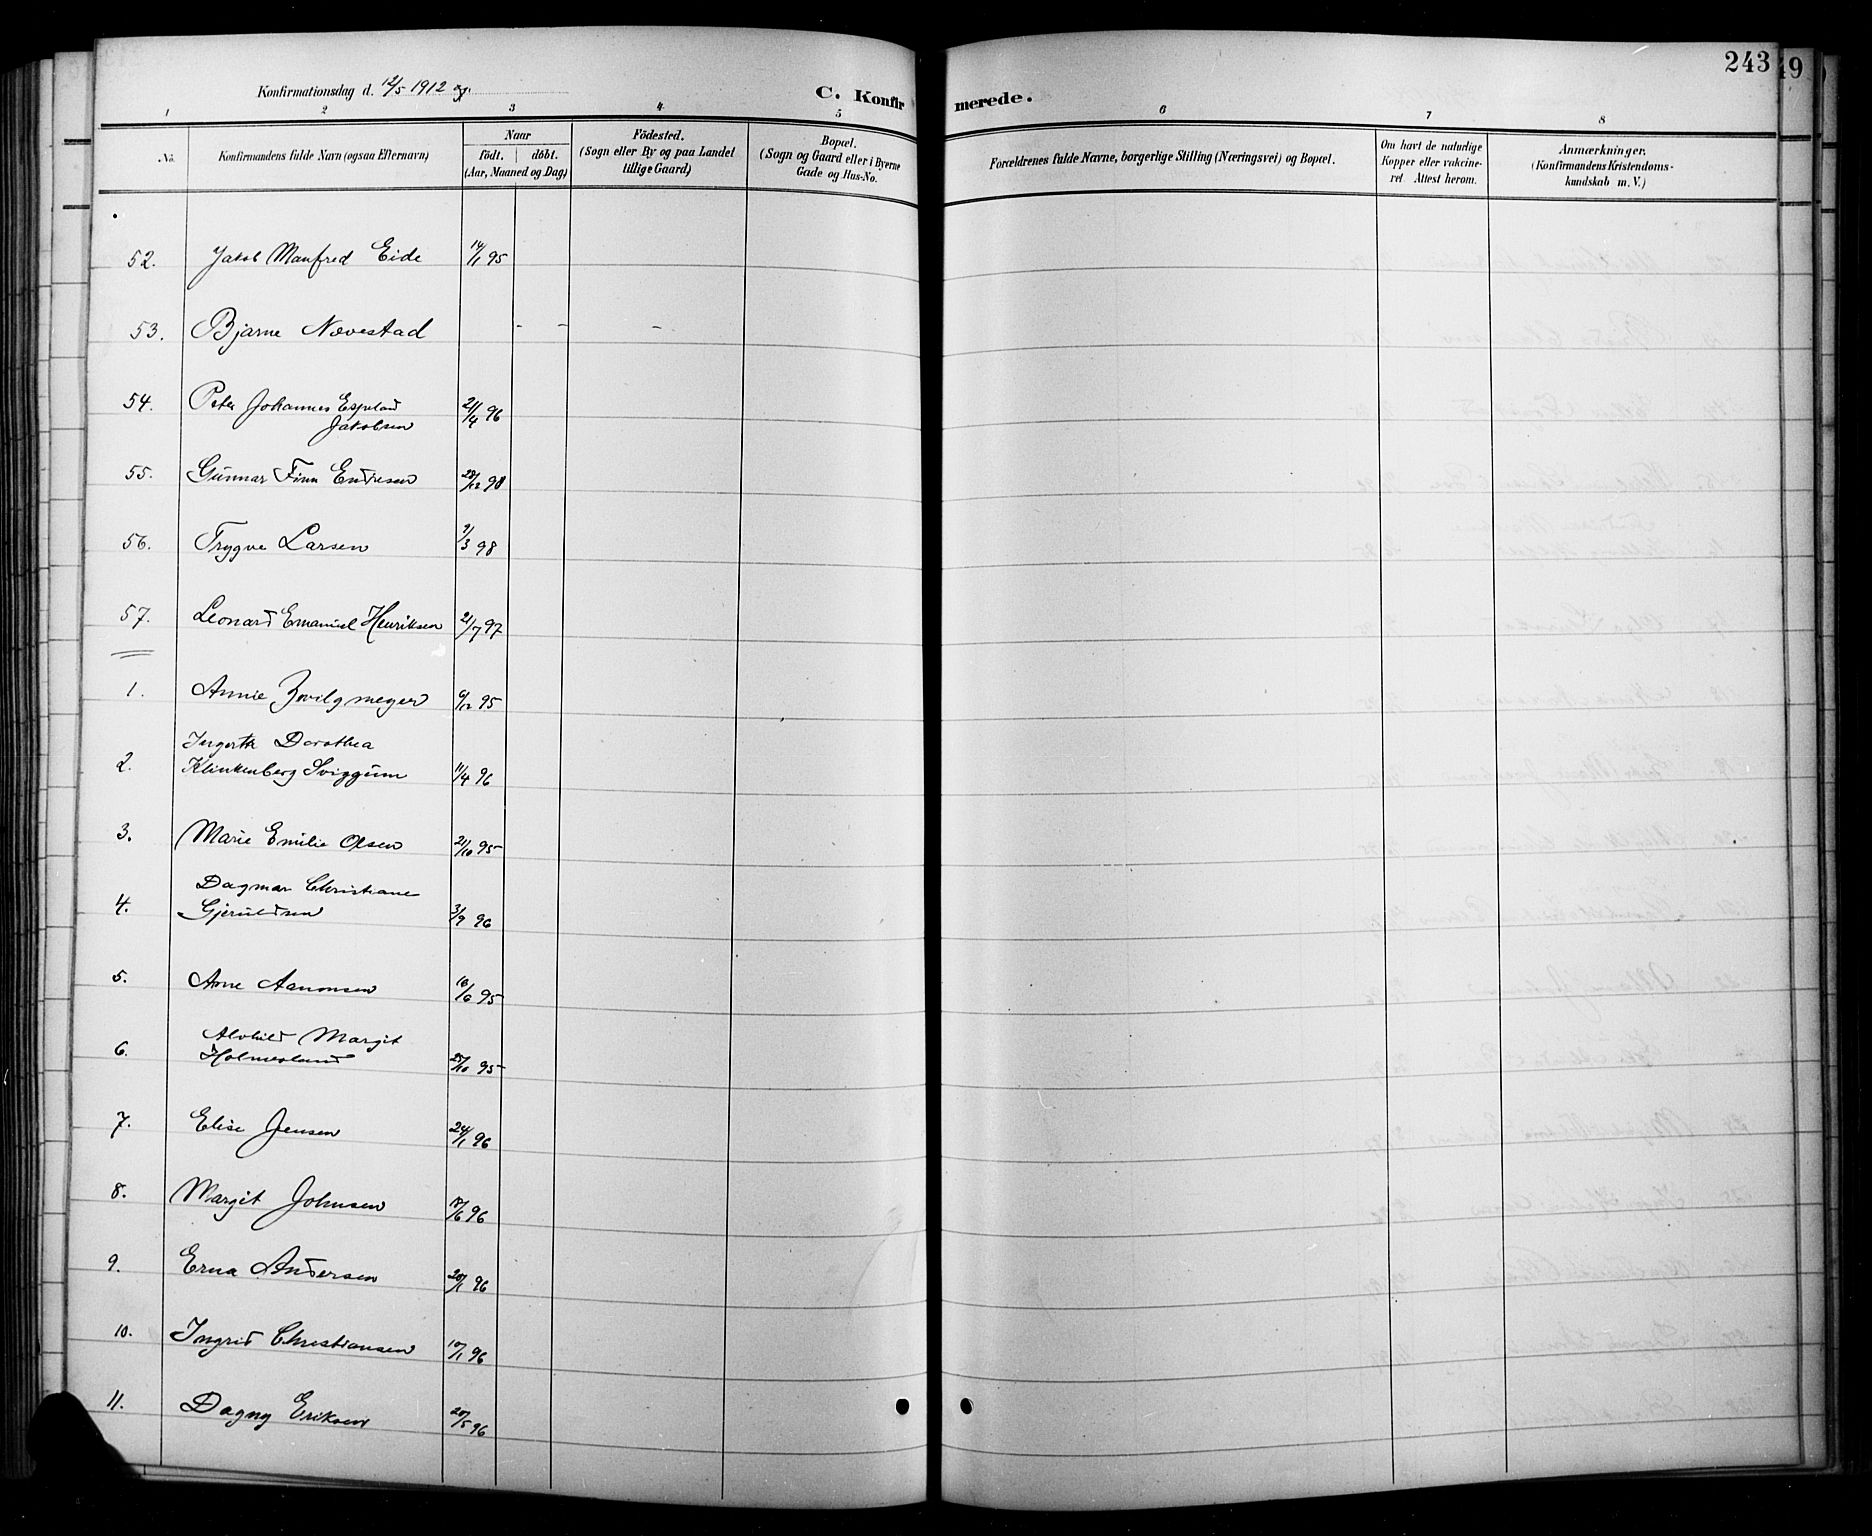 243
49
Konfirmationsdag d. 12/5 1912
C. Konfirmerede.
1 2 3 4 5 6 7 8
No.
Konfirmandens fulde Navn (ogsaa Efternavn)
Naar
födt. | döbt.
(Aar, Maaned og Dag)
Födested.
(Sogn eller By og paa Landet
tillige Gaard)
Bopæl.
(Sogn og Gaard eller i Byerne
Gade og Hus-No.
Forældrenes fulde Navne, borgerlige Stilling (Næringsvei) og Bopæl.
Om havt de naturlige
Kopper eller vakcine-
ret. Attest herom.
Anmærkninger.
(Konfirmandens Kristendoms-
kundskab m. V.)
52. Jakob Manfred Eide 14/1 95
53. Bjarne Nævestad - - -
54. Peter Johannes Espeland
Jakobsen 21/4 96
55. Gunnar Finn Endresen 28/12 98
56. Trygve Larsen /3 98
57. Leonard Emanuel Henriksen 21/7 97
1. Annie Zwilgmeyer 6/12 95
2. Dorothea
Klinkenberg Sviggum 11/4 96
3. Marie Emilie Olsen 21/10 95
4. Dagmar Christiane
Gjeruldsen 3/9 96
5. Arne Aanonsen 16/6 95
6. Alvhild Margit
Holmesland 25/10 95
7. Elise Jensen 24/1 96
8. Margit Johnsen 18/6 96
9. Erna Andersen 20/1 96
10. Ingrid Christiansen 10/1 96
11. Dagny Eriksen 20/5 96